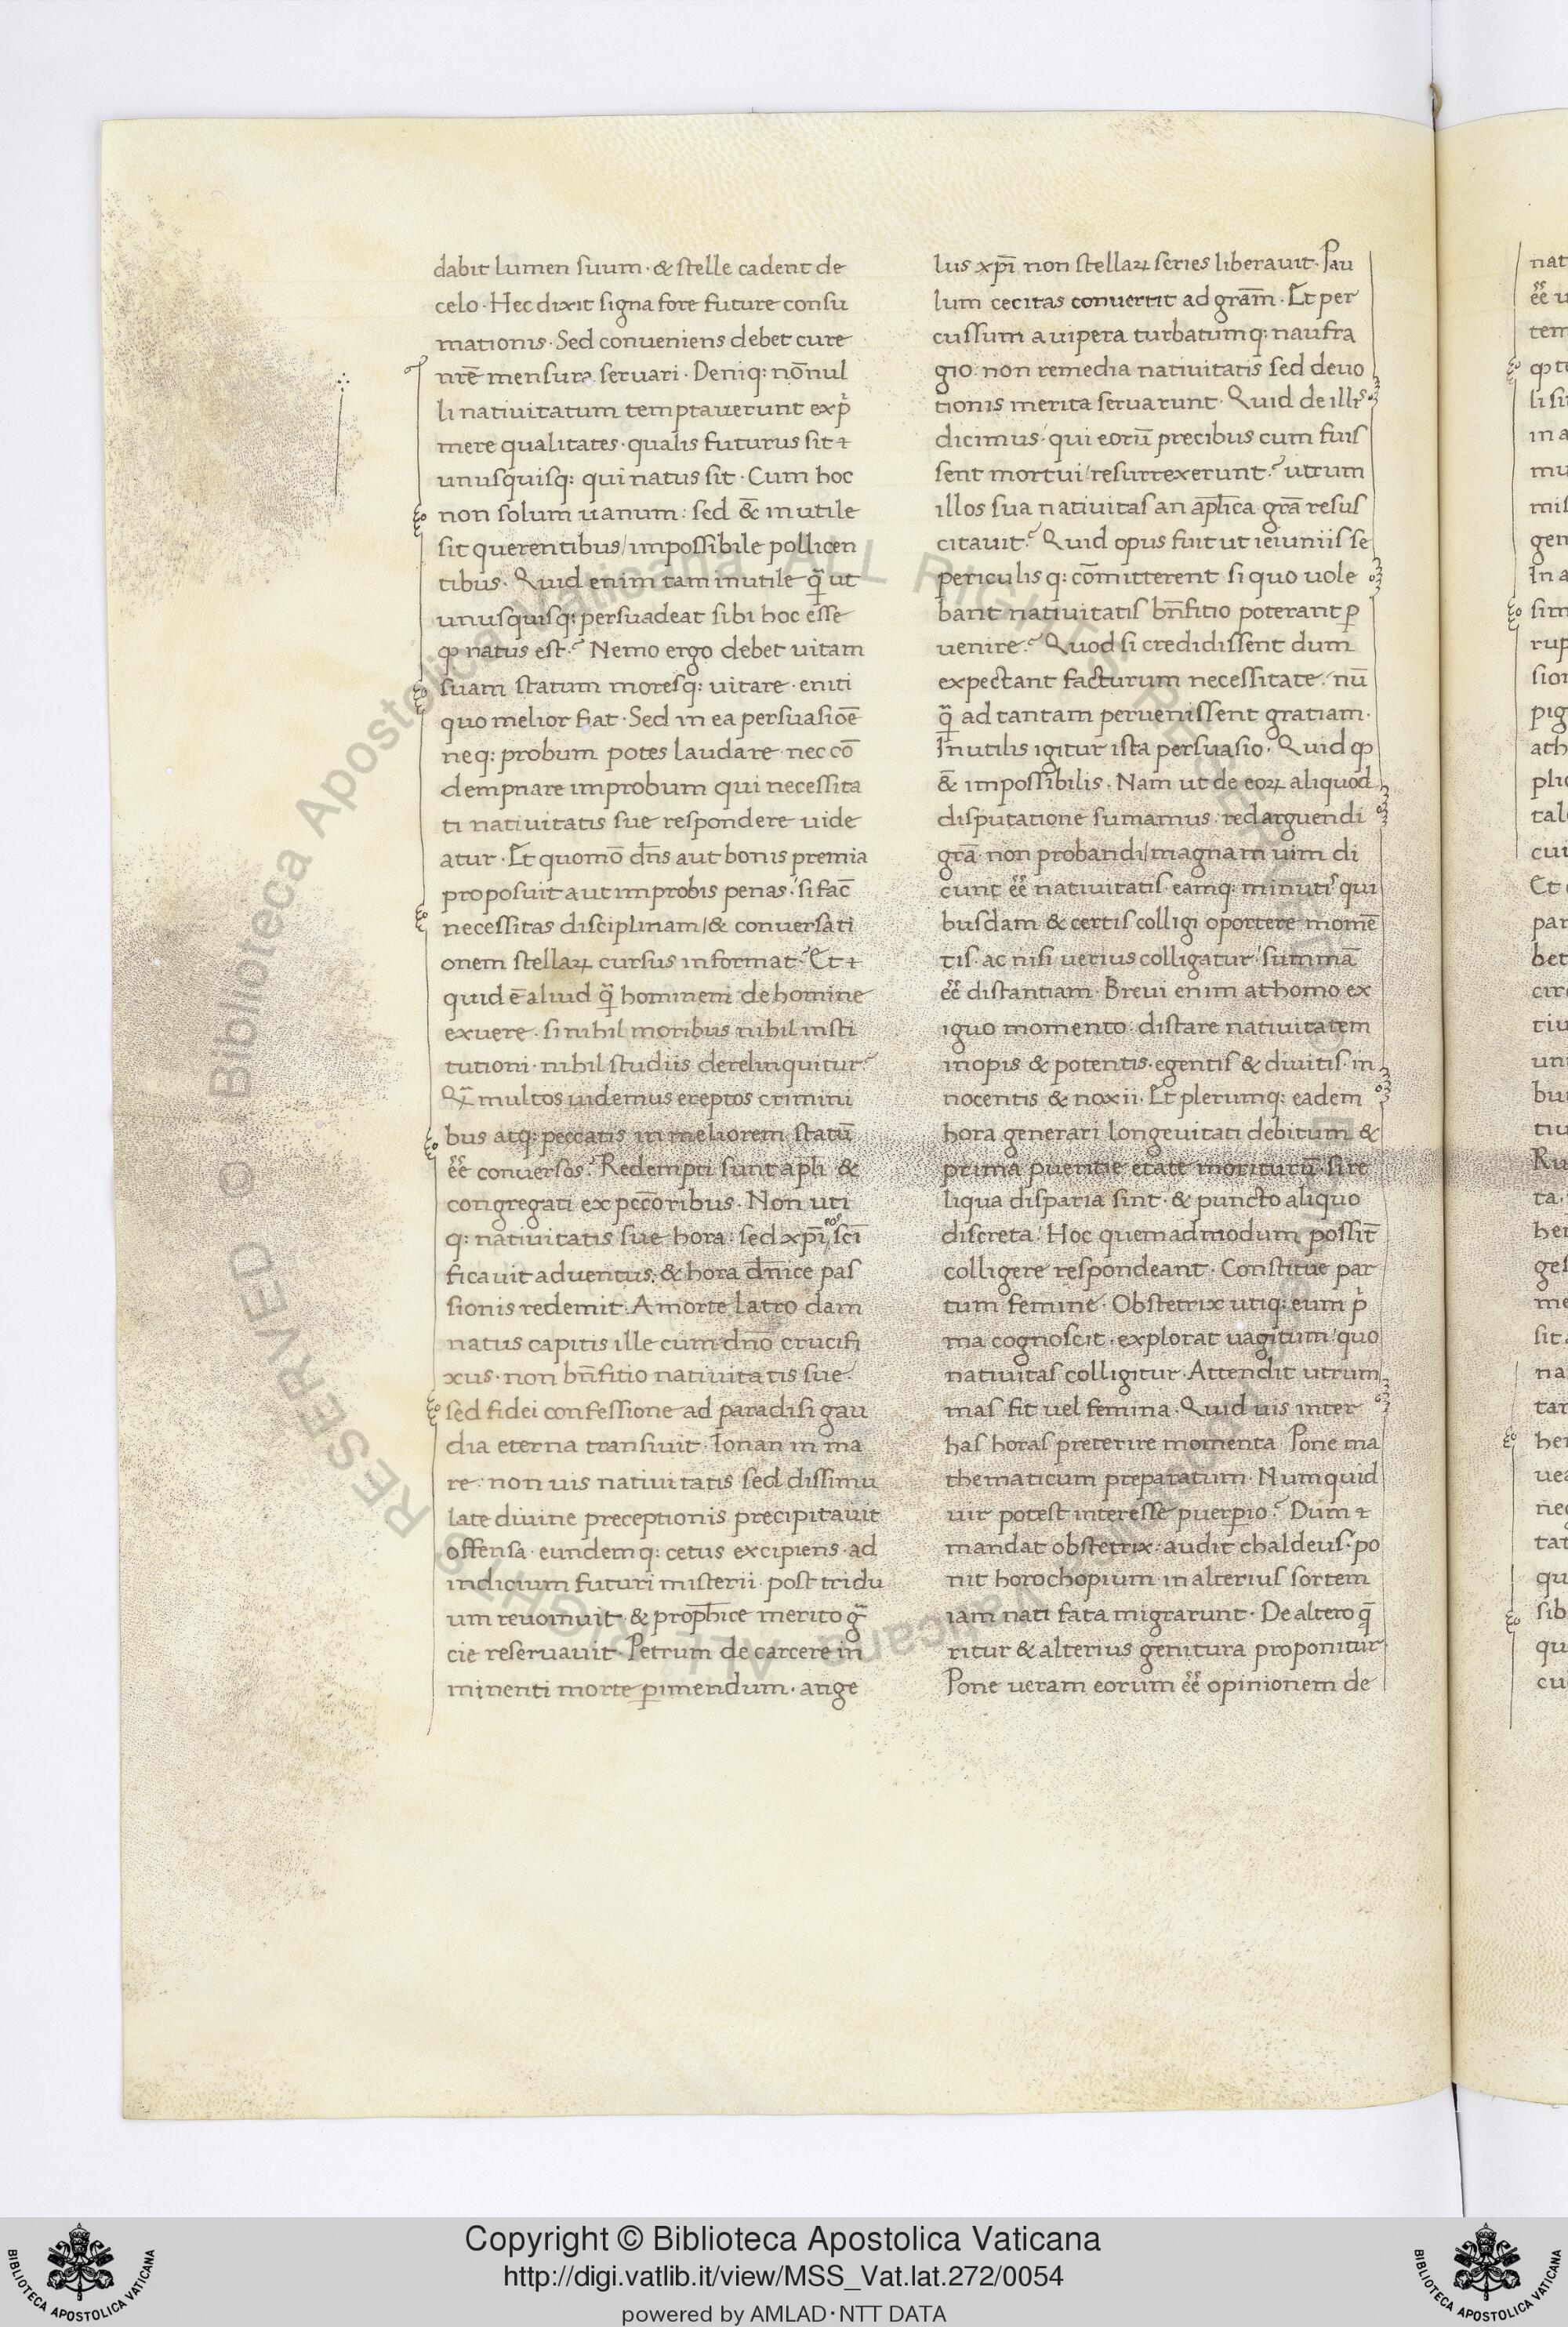 dabit lumen suum · & stelle cadent de
celo · Hec dixit signa fore future consu
mationis · Sed conveniens debet cure
nrē mensura servari · Deniq: nōnul
li nativitatum temptaverunt exp̄
mere qualitates · qualis futurus sit &
unusquisq: qui natus sit · Cum hoc
non solum vanum : sed &̄ inutile
sit querentibus / impossibile pollicen
tibus · Quid enim tam inutile q̄ ut
unusquisq: persuadeat sibi hoc esse
qd natus est? Nemo ergo debet vitam
suam statum moresq: vitare · eniti
quo melior fiat · Sed in ea persuasiōe
neq: probum potes laudare · nec cō
dempnare improbum qui necessita
ti nativitatis sue respondere vide
atur · Et quomō dn̄s aut bonis premia
proposuit aut improbis penas · si fac̄
necessitas disciplinam / & conversati
onem stellaꝝ cursus informat? Et &
quid ē aliud q̄ hominem de homine
exuere · si nihil moribus nihil insti
tutioni · nihil studiis derelinquitur?
Qr̄ multos videmus ereptos crimini
bus atq: peccatis in meliorem statū
eē conversos? Redempti sunt apl̄i &
congregati ex pccōribus · Non uti
q: nativitatis sue hora : sed xpī eos scī
ficavit adventus · & hora dn̄ice pas
sionis redemit · A morte latro dam
natus capitis ille cum dnō crucifi
xus · non bn̄fitio nativitatis sue ·
sed fidei confessione ad paradisi gau
dia eterna transivit · Ionan in ma
re : non vis nativitatis sed dissimu
late divine preceptionis precipitavit
offensa · eundemq: cetus excipiens · ad
indicium futuri misterii · post tridu
um revomuit · & prophīce merito gr̄a
cie reservavit · Petrum de carcere in
minenti morte ꝑimendum · ange
lus xpī non stellaꝝ series liberavit · Pau
lum cecitas convertit ad grām · Et per
cussum a vipera turbatumq: naufra
gio : non remedia nativitatis sed devo
tionis merita servarunt · Quid de illis
dicimus · qui eorū precibus cum fuis
sent mortui / resurrexerunt? utrum
illos sua nativitas an apl̄ica grā resus
citavit? Quid opus fuit ut ieiuniis se
periculisq: cōmitterent · si quo vole
bant nativitatis bn̄fitio poterant ꝑ
venire? Quod si credidissent dum
expectant facturum necessitate · nū
q̄ ad tantam pervenissent gratiam ·
Inutilis igitur ista persuasio · Quid qd
&̄ impossibilis · Nam ut de eoꝝ aliquod
disputatione sumamus · redarguendi
grā non probandi / magnam vim di
cunt eē nativitatis · eamq: minutis qui
busdam & certis colligi oportere momē
tis · ac nisi verius colligatur · summā
eē distantiam · Brevi enim athomo ex
iguo momento : distare nativitatem
inopis & potentis · egentis & divitis · in
nocentis & noxii · Et plerumq: eadem
hora generari longevitati debitum &
prima pueritie etate moriturū · si re
liqua disparia sint · & puncto aliquo
discreta · Hoc quemadmodum possit
colligere respondeant · Constitue par
tum femine · Obstetrix utiq: eum p̄
ma cognoscit · explorat vagitum · quo
nativitas colligitur · Attendit utrum
mas sit vel femina · Quid vis inter
has horas preterire momenta Pone ma
thematicum preparatum · Numquid
vir potest interesse puerpio? Dum &
mandat obstetrix · audit chaldeus · po
nit horochopium · in alterius sortem
iam nati fata migrarunt · De altero q̄
ritur & alterius genitura proponitur
Pone veram eorum eē opinionem de
Copyright © Biblioteca Apostolica Vaticana
http://digi.vatlib.it/view/MSS_Vat.lat.272/0054
powered by AMLAD · NTT DATA